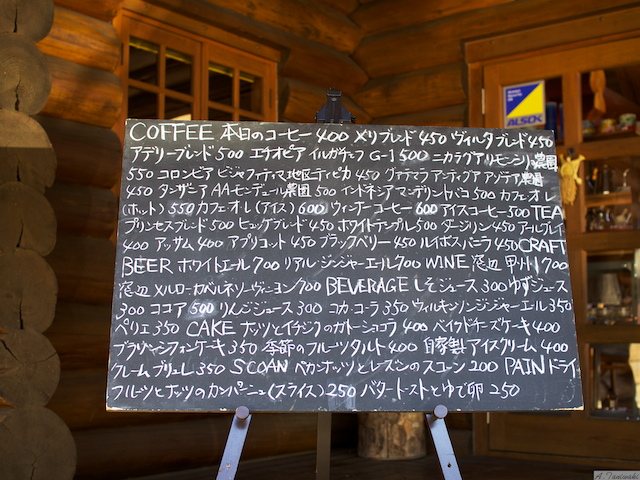 COFFEE 本日のコーヒー 400 メリブレンド 450 ヴィルタブレンド 450
アデリーブレンド 500 エチオピア イルガチェフ G-1 500 ニカラグア リモンシリョ農園
550 コロンビア ビジャファティマ地区ティピカ 450 グァテマラ アンティグア アゾテア農園
450 タンザニア AA モンデュール農園 500 インドネシア マンデリントバコ 500 カフェオレ
(ホット) 550 カフェオレ(アイス) 600 ウィンナーコーヒー 600 アイスコーヒー 500 TEA
プリンセスブレンド 500 ヒュッゲブレンド 450 ホワイトテンプル 500 ダージリン 450 アールグレイ
400 アッサム 400 アプリコット 450 ブラックベリー 450 ルイボスバニラ 450 CRAFT
BEER ホワイトエール 700 リアル・ジンジャーエール 700 WINE 窓辺 甲州 700
窓辺 メルロ・カベルネソーヴィニヨン 700 BEVERAGE しそジュース 300 ゆずジュース
300 ココア 500 りんごジュース 300 コカ・コーラ 350 ウィルキンソンジンジャーエール 350
ペリエ 350 CAKE ナッツとイチジクのガトーショコラ 400 ベイクドチーズケーキ 400
ブラウンシフォンケーキ 350 季節のフルーツタルト 400 自家製アイスクリーム 400
クレームブリュレ 350 SCOAN ペカンナッツとレーズンのスコーン 200 PAIN ドライ
フルーツとナッツのカンパーニュ(スライス) 250 バタートーストとゆで卵 250
ALSOK